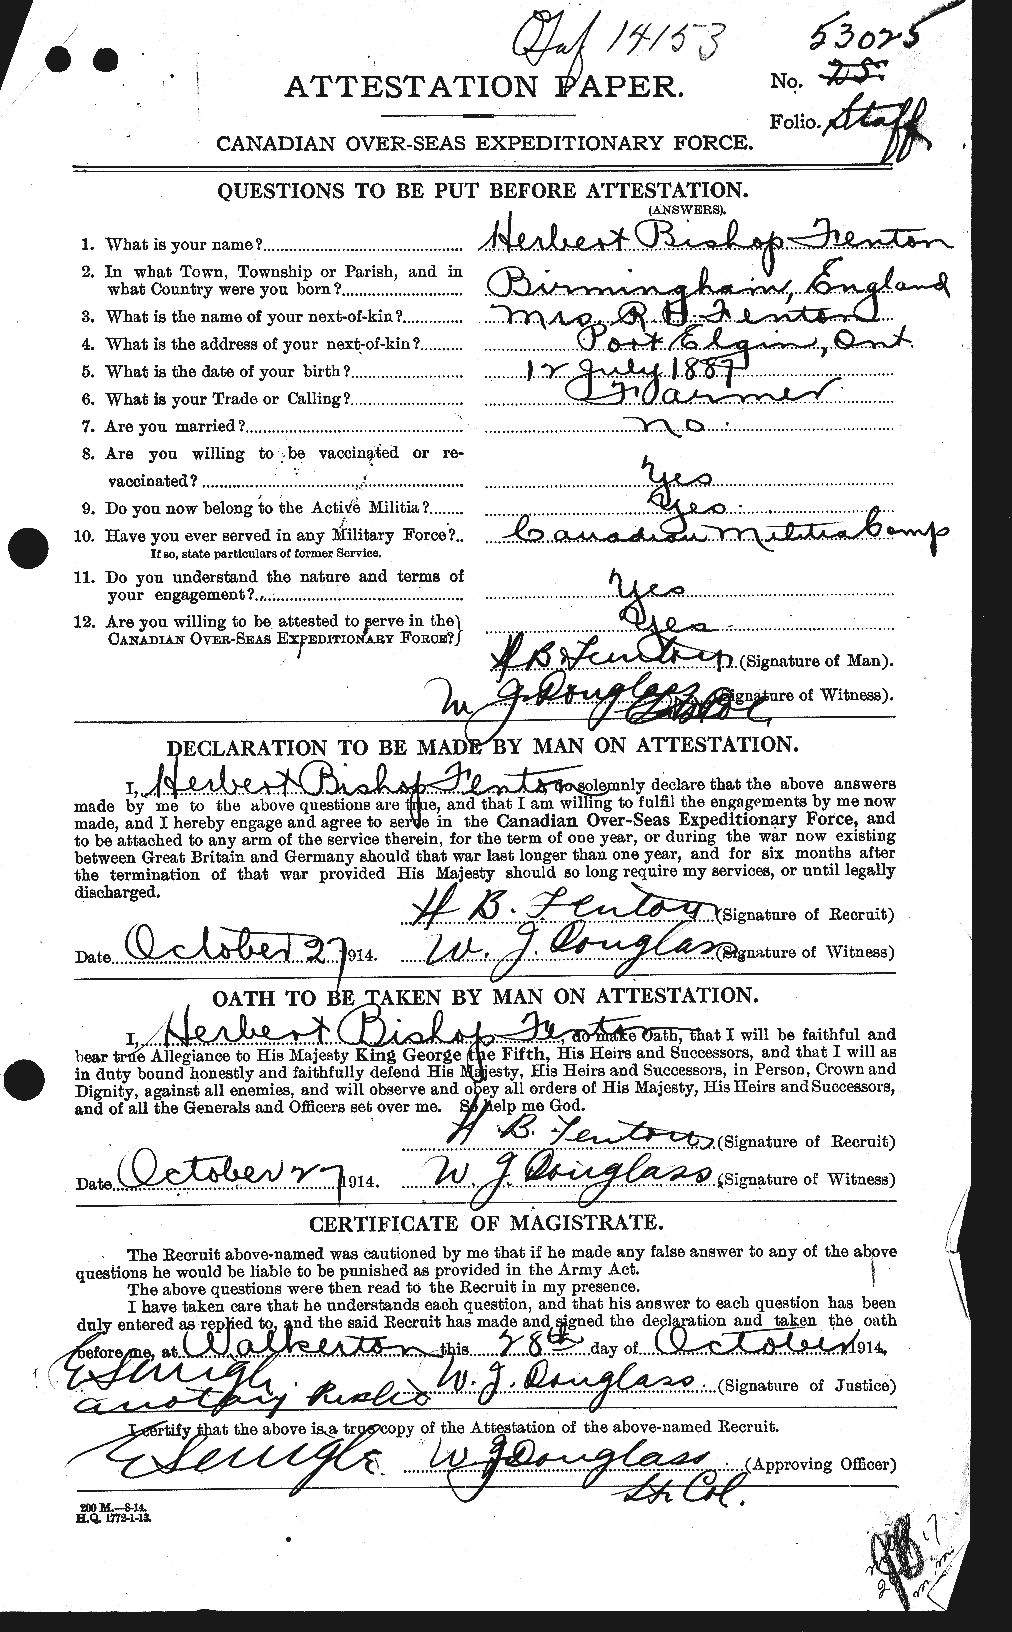 14153
53025
ATTESTATION PAPER.
No. 25
Folio. Staff
CANADIAN OVER-SEAS EXPEDITIONARY FORCE.
QUESTIONS TO BE PUT BEFORE ATTESTATION.
(ANSWERS).
1. What is your name? Herbert Bishop Fenton
2. In what Town, Township or Parish, and in
what Country were you born? Birmingham, England
3. What is the name of your next-of-kin? Mrs R H Fenton
4. What is the address of your next-of-kin? Port Elgin, Ont.
5. What is the date of your birth? 12 July 1887
6. What is your Trade or Calling? Farmer
7. Are you married? no
8. Are you willing to be vaccinated or re-
vaccinated? Yes
9. Do you now belong to the Active Militia? Yes
10. Have you ever served in any Military Force? Canadian Militia Camp
If so, state particulars of former Service.
11. Do you understand the nature and terms of
your engagement? Yes
12. Are you willing to be attested to serve in the
CANADIAN OVER-SEAS EXPEDITIONARY FORCE? Yes
H B Fenton (Signature of Man).
W J Douglass (Signature of Witness).
DECLARATION TO BE MADE BY MAN ON ATTESTATION.
I, Herbert Bishop Fenton do solemnly declare that the above answers
made by me to the above questions are true, and that I am willing to fulfil the engagements by me now
made, and I hereby engage and agree to serve in the Canadian Over-Seas Expeditionary Force, and
to be attached to any arm of the service therein, for the term of one year, or during the war now existing
between Great Britain and Germany should that war last longer than one year, and for six months after
the termination of that war provided His Majesty should so long require my services, or until legally
discharged.
H B. Fenton (Signature of Recruit)
Date October 27 1914. W. J. Douglass (Signature of Witness)
OATH TO BE TAKEN BY MAN ON ATTESTATION.
I, Herbert Bishop Fenton, do make Oath, that I will be faithful and
bear true Allegiance to His Majesty King George the Fifth, His Heirs and Successors, and that I will as
in duty bound honestly and faithfully defend His Majesty, His Heirs and Successors, in Person, Crown and
Dignity, against all enemies, and will observe and obey all orders of His Majesty, His Heirs and Successors,
and of all the Generals and Officers set over me. So help me God.
H B. Fenton (Signature of Recruit)
Date October 27 1914. W. J. Douglass (Signature of Witness)
CERTIFICATE OF MAGISTRATE.
The Recruit above-named was cautioned by me that if he made any false answer to any of the above
questions he would be liable to be punished as provided in the Army Act.
The above questions were then read to the Recruit in my presence.
I have taken care that he understands each question, and that his answer to each question has been
duly entered as replied to, and the said Recruit has made and signed the declaration and taken the oath
before me, at Walkerton this 28th day of October 1914.
W. J. Douglass (Signature of Justice)
a notary Public
I certify that the above is a true copy of the Attestation of the above-named Recruit.
W J Douglass (Approving Officer)
Lt Col.
200 M.—8-14.
H.Q. 1772-1-13.